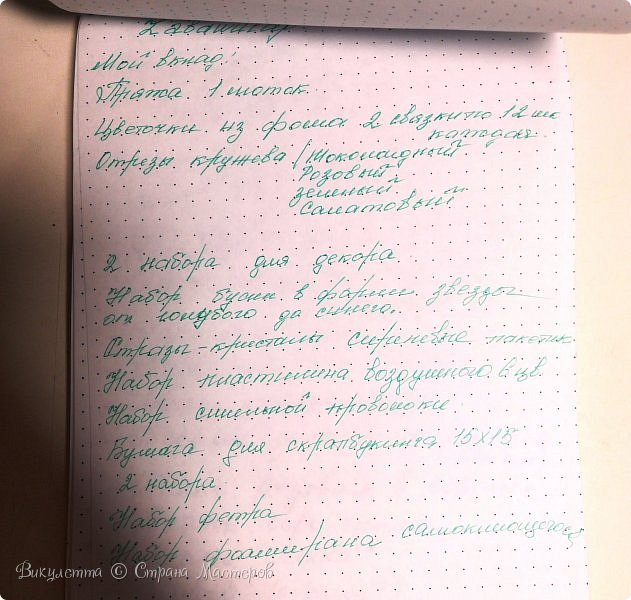 Мой вклад!
Пряжа 1 моток
Цветочки из фома 2 связки по 12 шт
каждая.
Отрезы кружева / Шоколадный
Розовый
зеленый
салатовый
2 набора для декора
Набор бусин в форме звезды
от голубого до синего.
Стразы-кристалы сиреневые пакетик
Набор пластилина воздушного 6 цв.
Набор синельной проволоки
Бумага для скрапбукинга 15х15
2 набора
Набор фетра
Набор фоамирана самоклеющегося
Викулетта © Страна Мастеров